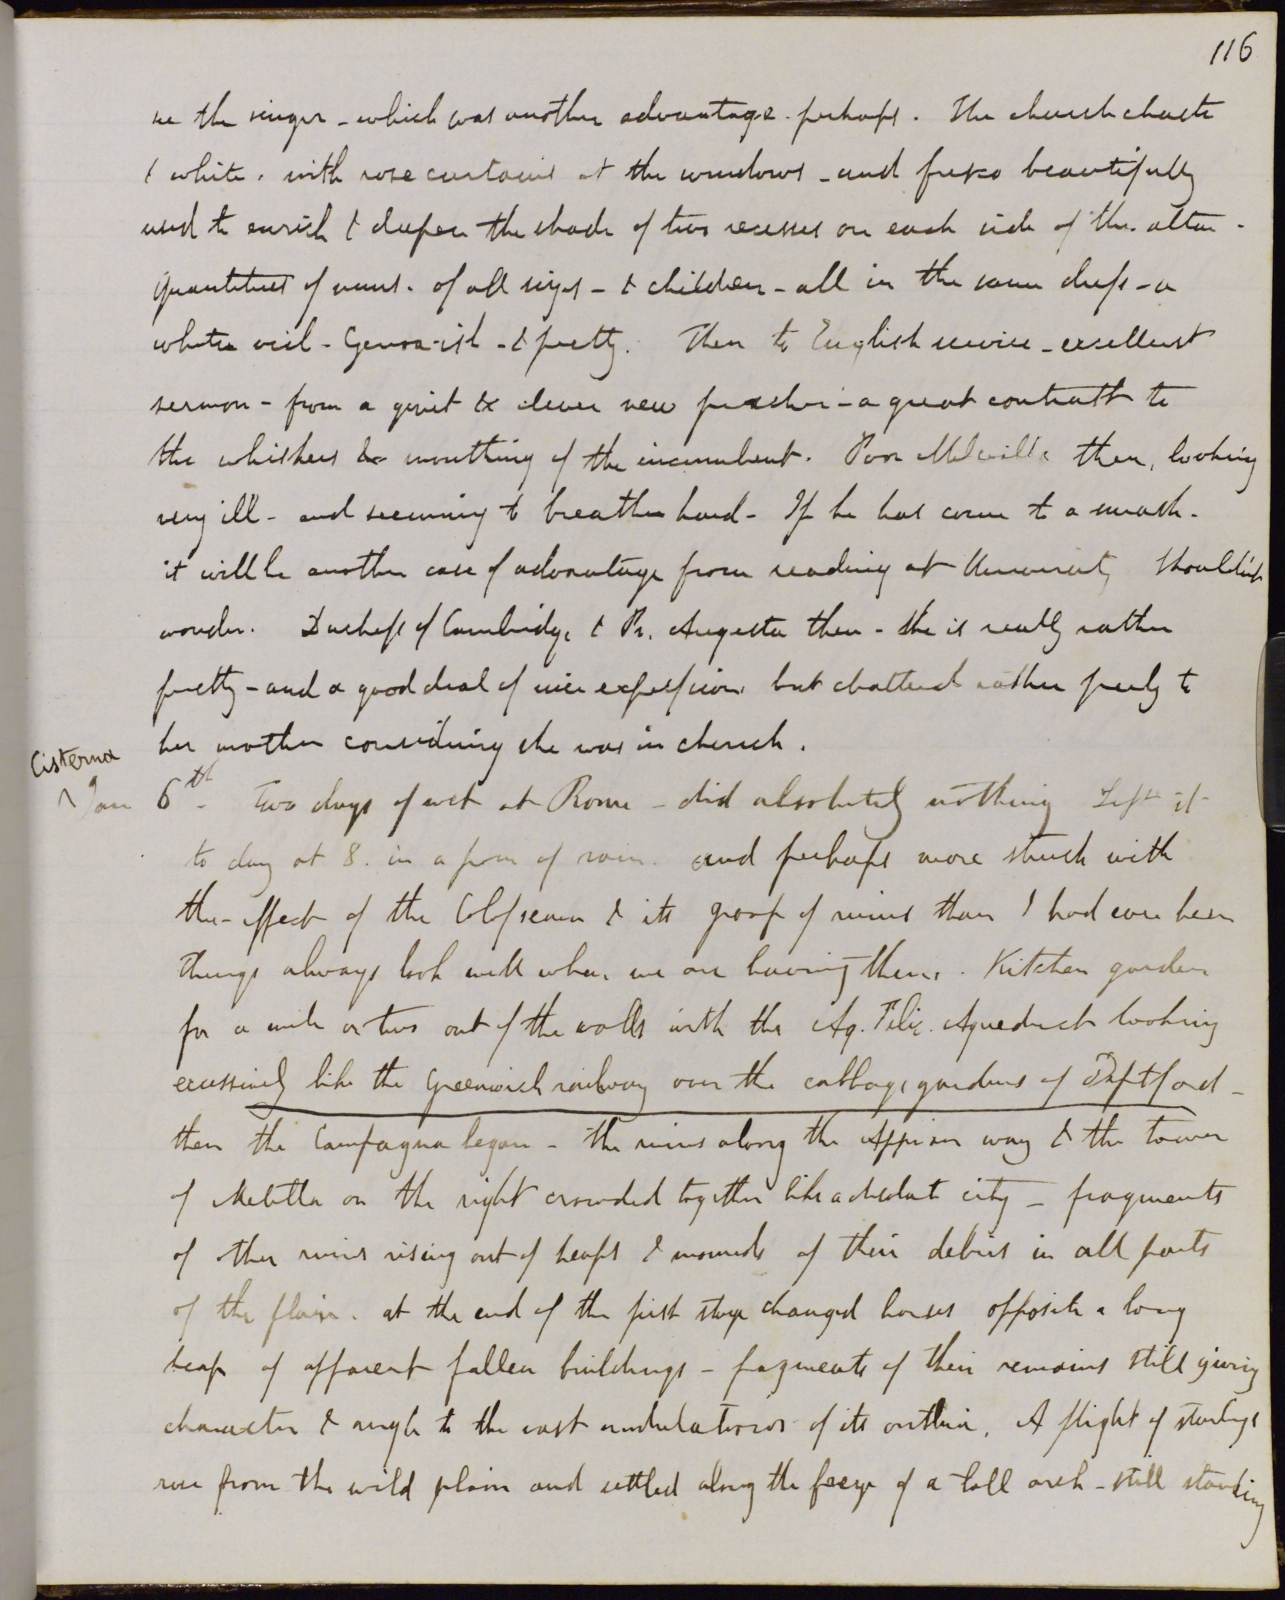 116
see the singer - which was another advantage perhaps. The church chaste
& white. with rose curtains at the windows - and fresco beautifully
used to enrich & deepen the shade of two recesses on each side of the altar -
Quantities of nuns. of all sizes - & children - all in the same dress - a
white veil - Genoa-ish - & pretty. Then to English service - excellent
sermon - from a quiet & clever new preacher - a great contrast to
the whiskers & mouthing of the incumbent. Poor Melville there, looking
very ill - and seeming to breathe hard - If he has come to a smash -
it will be another case of advantage from reading at University Shouldnt
wonder. Duchess of Cambridge & Pr. Augusta there - she is really rather
pretty - and a good deal of nice expression but chattered rather freely to
her mother considering she was in church.
Cisterna
Jan 6th - Two days of rest at Rome - did absolutely nothing Left it
to day at 8. in a of rain. and perhaps more struck with
the effect of the Colosseum & its group of ruins than I had ever been
Things always look well when we are leaving them. Kitchen garden
for a mile or two out of the walls with the Aq. Felic. Aqueduct looking
excessively like the Greenwich railway over the cabbage gardens of Deptford -
then the Campagna began - the ruins along the Appian way & the tower
of Metella on the right crowded together like a desolate city - fragments
of other ruins rising out of heaps & mounds of their debris in all parts
of the plain. at the end of the first stage changed horses opposite a long
heap of apparent fallen buildings - fragments of their remains still giving
character & angle to the vast undulations of its outline. A flight of starlings
rose from the wild plain and settled along the frieze of a tall arch - still standing